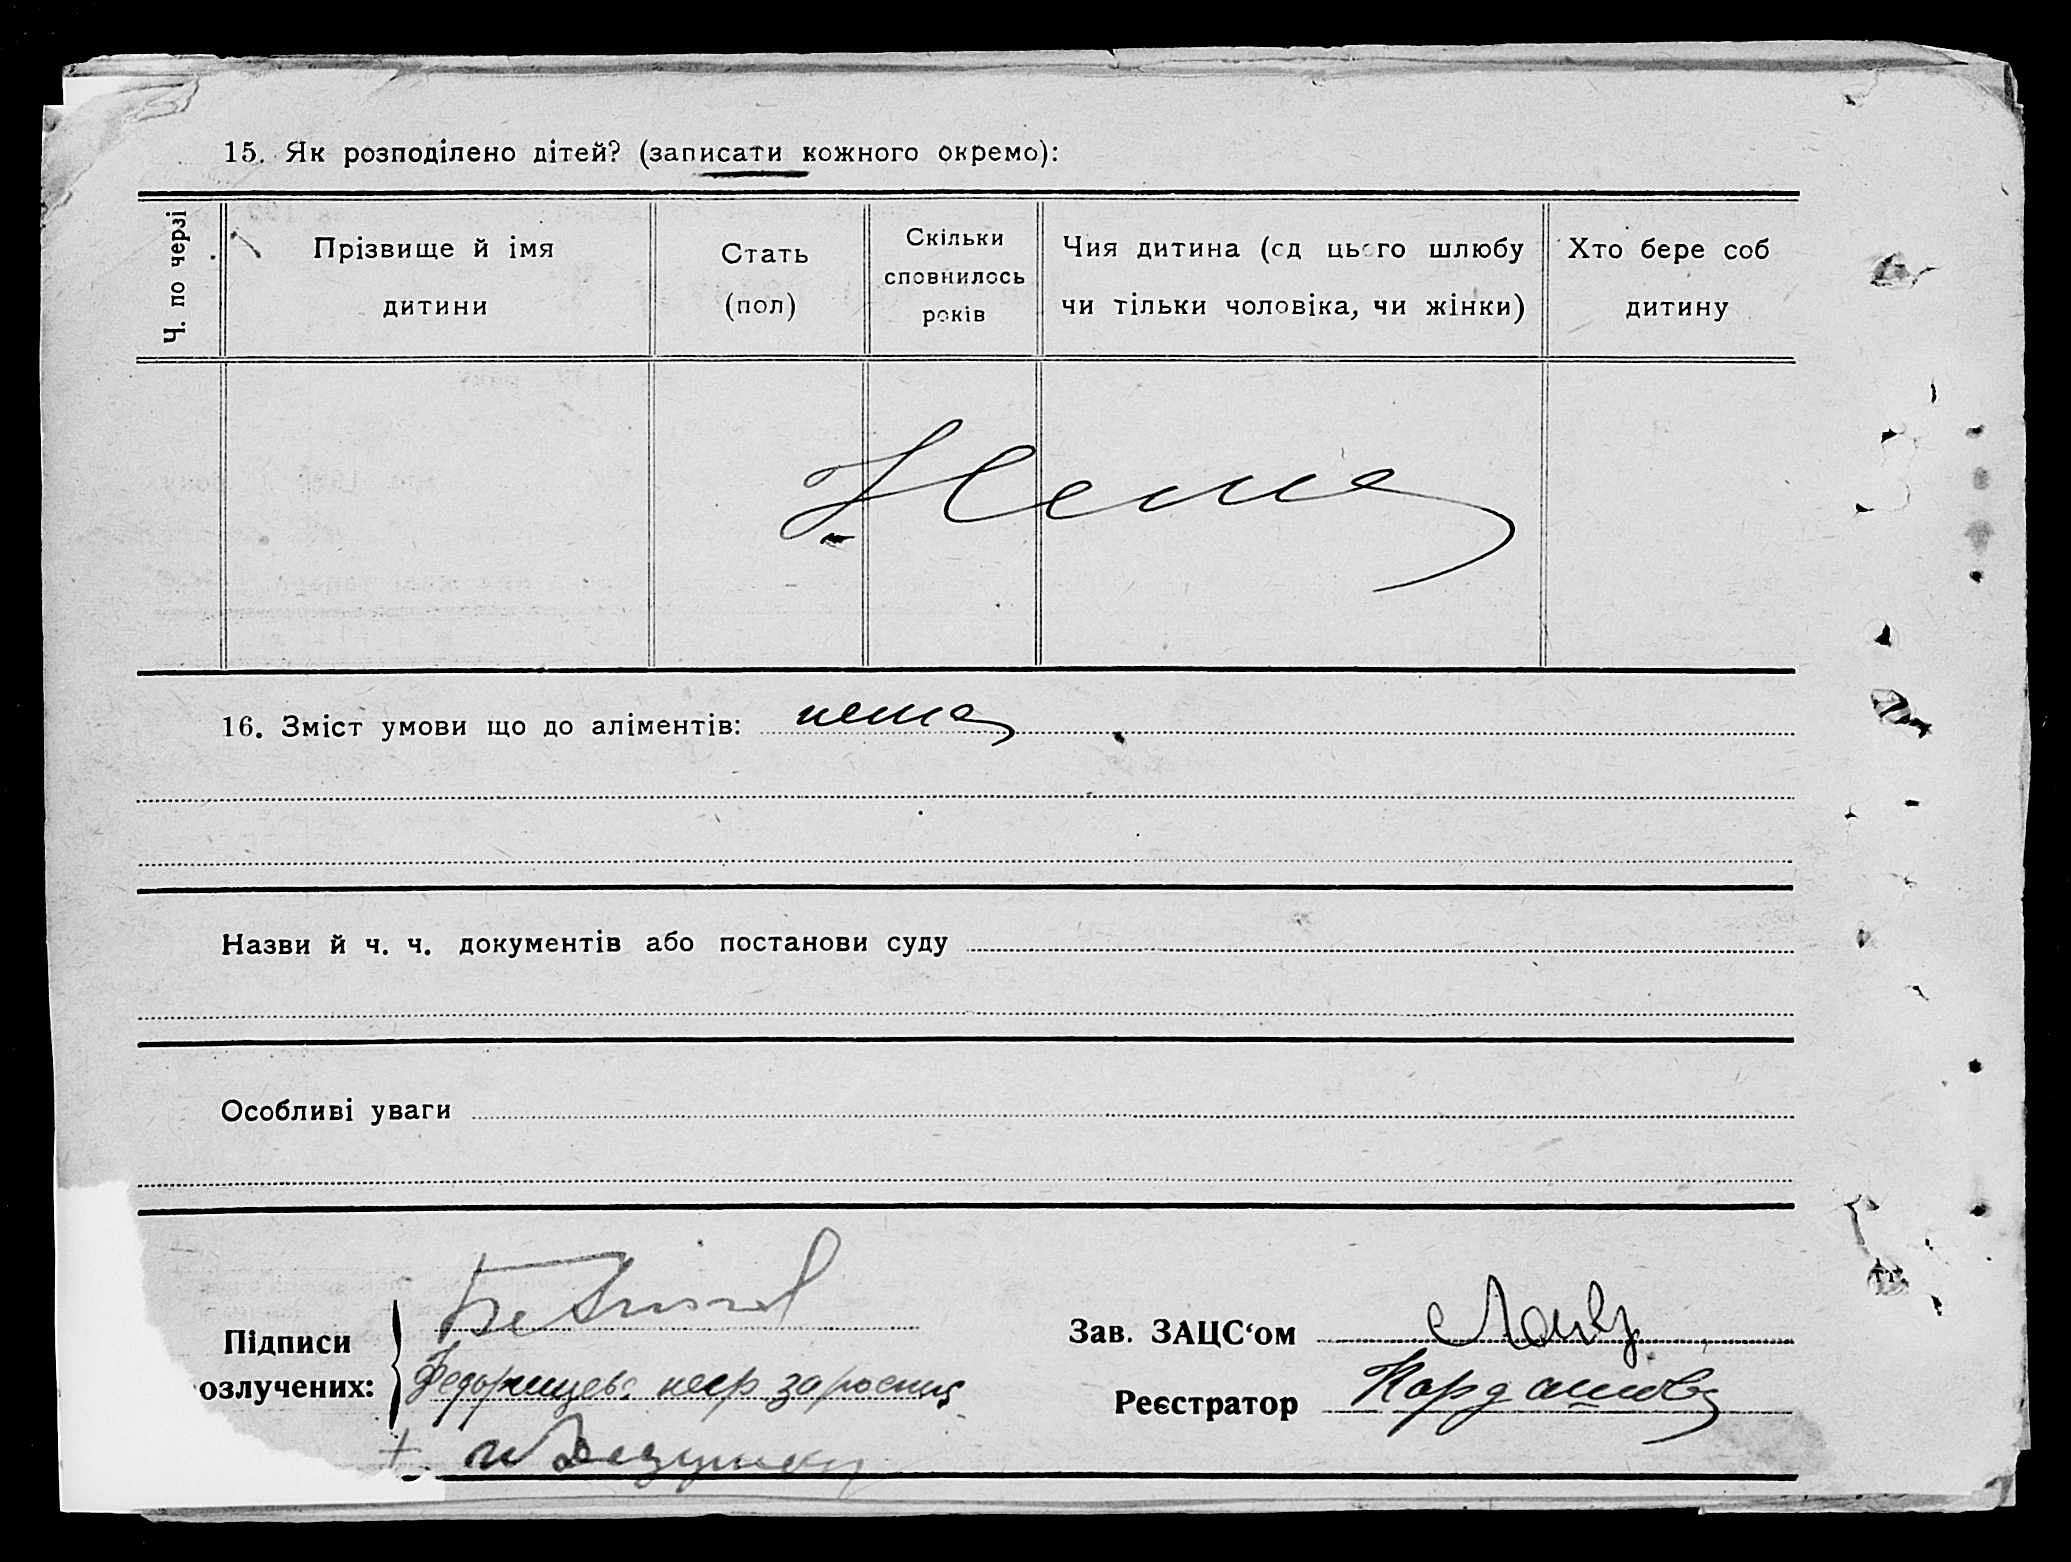 15. Як розподілено дітей? (записати кожного окремо):
Ч. по черзі
Прізвище й імя
дитини
Стать
(пол)
Скільки
сповнилось
років
Чия дитина (од цього шлюбу
чи тільки чоловіка, чи жінки)
Хто бере соб
дитину
Нема
16. Зміст умови що до аліментів: нема
Назви й ч. ч. документів або постанови суду
Особливі уваги
Підписи
озлучених:
Зав. ЗАЦС‘ом
Реєстратор Кардашова